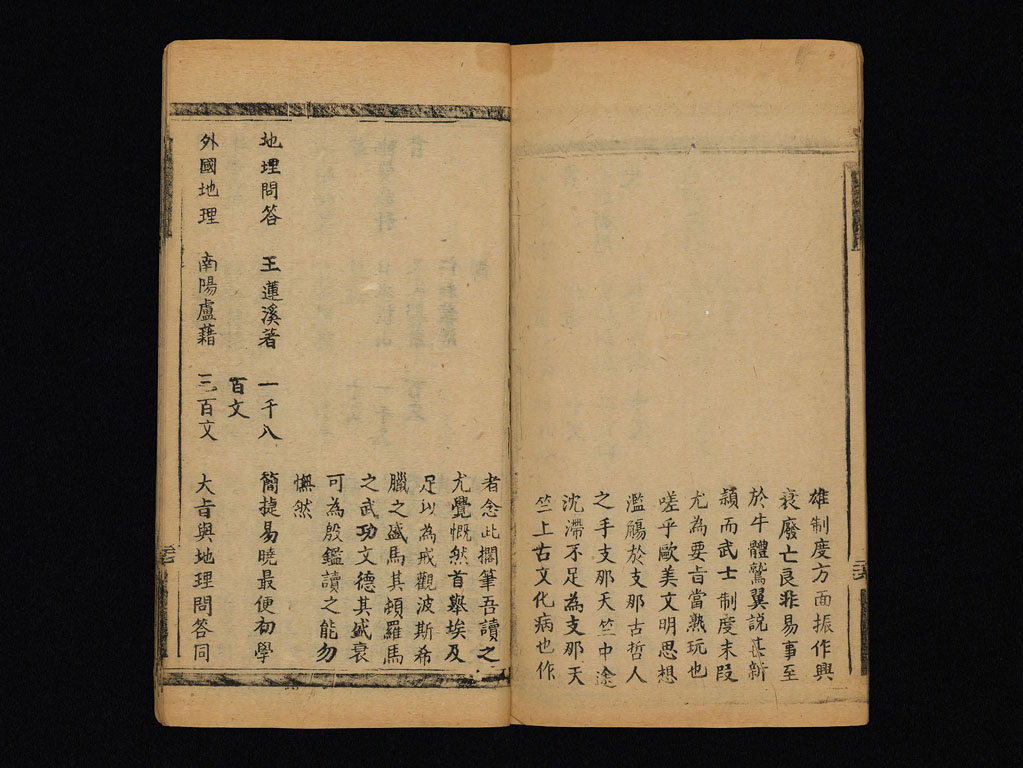 雄制度方面振作興
衰廢亡良非易事至
於牛體鷲翼説甚新
頴而武士制度末段
尤為要旨當熟玩也
嗟乎歐美文明思想
濫觴於支那古哲人
之手支那天竺中途
沈滯不足為支那天
竺上古文化病也作
者念此擱筆吾讀之
尤覺慨然首舉埃及
足以為戒觀波斯希
臘之盛馬其頓羅馬
之武功文德其盛衰
可為殷鑑讀之能勿
憮然
地理問答 王蓮溪著 一千八 簡捷易曉最便初學
百文
外國地理 南陽盧藉 三百文 大旨與地理問答同